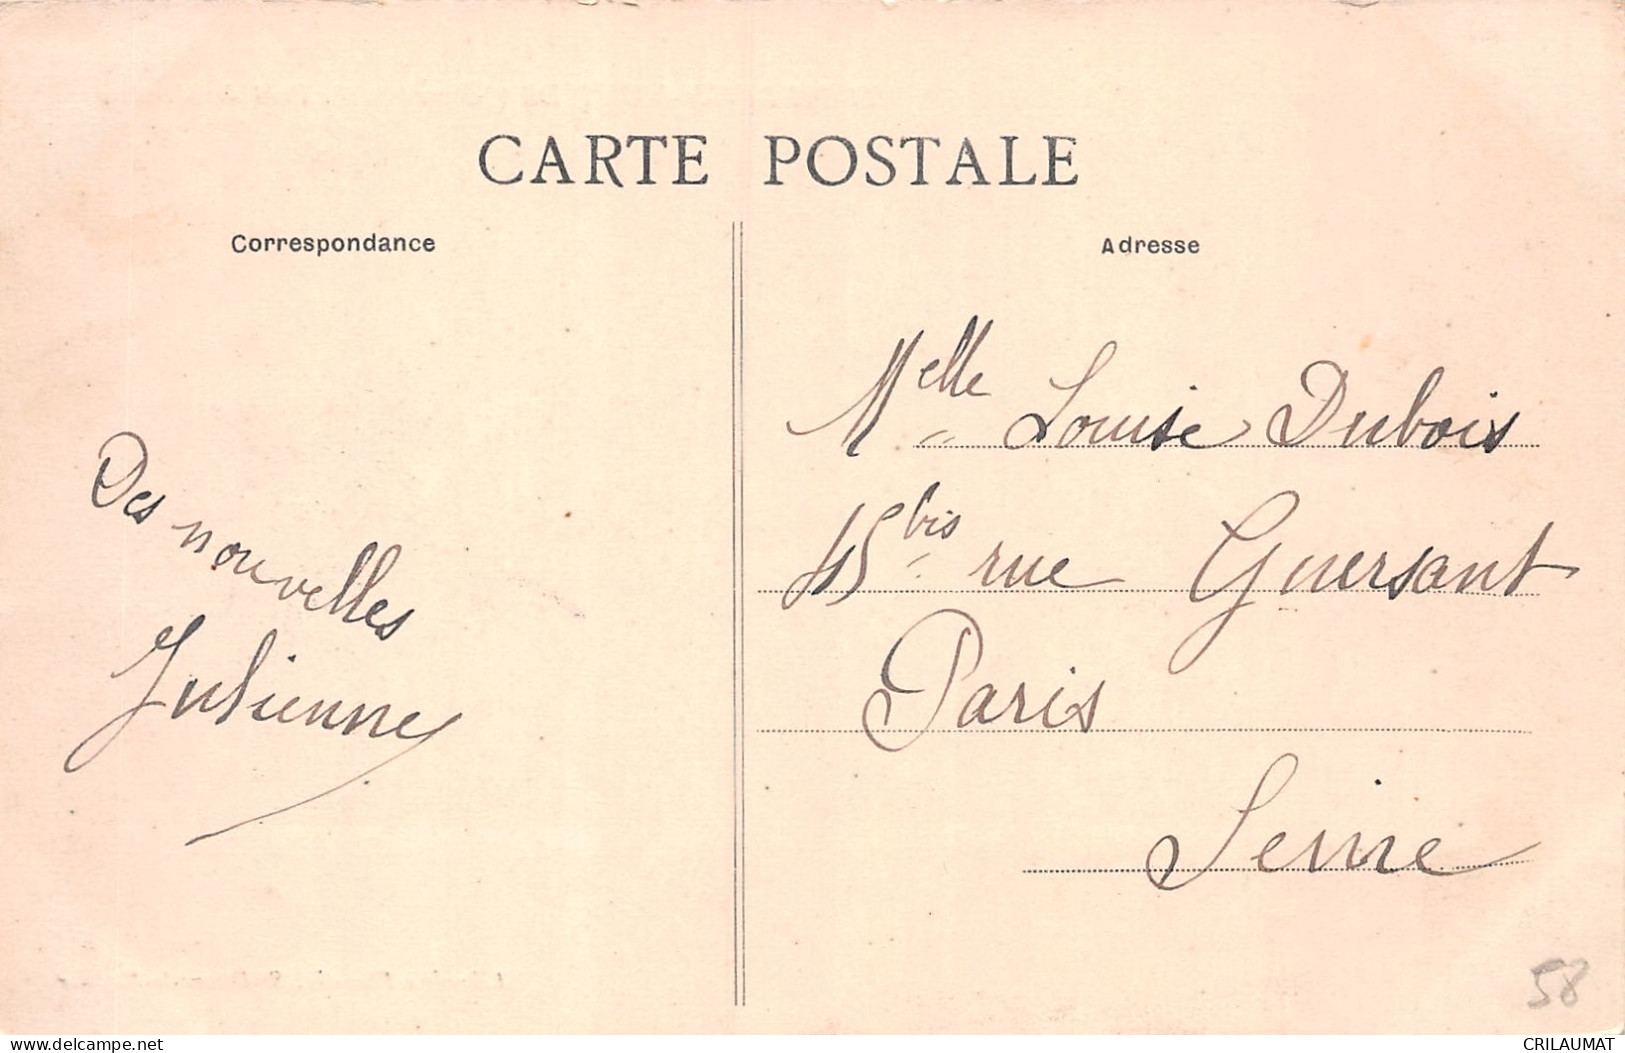 CARTE POSTALE
Correspondance
Adresse
Des nouvelles
Julienne
Melle Louise Dubois
45bis rue Guersant
Paris
Seine
58
www.delcampe.net
CRILAUMAT